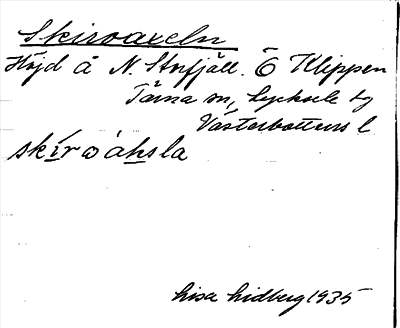 Skirvaxeln
Höjd å N. Storfjäll. Ö Klippen
Tärna sn, Lycksele tg
Västerbottens l
skírváksla
Lisa Lidberg 1935